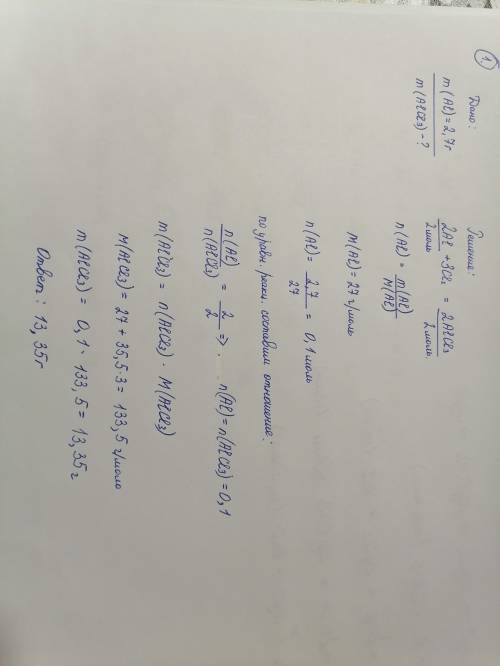 1.
Дано:
m(Al) = 2,7г
m(AlCl₃) - ?
Решение:
2Al + 3Cl₂ = 2AlCl₃
2моль 2моль.
n(Al) = m(Al)/M(Al)
M(Al) = 27 г/моль
n(Al) = 2,7/27 = 0,1 моль
по уравн. реакц. составим отношение:
n(Al)/n(AlCl₃) = 2/2 => . n(Al) = n(AlCl₃) = 0,1
m(AlCl₃) = n(AlCl₃) · M(AlCl₃)
M(AlCl₃) = 27 + 35,5·3 = 133,5 г/моль
m(AlCl₃) = 0,1 · 133,5 = 13,35г
Ответ: 13,35г